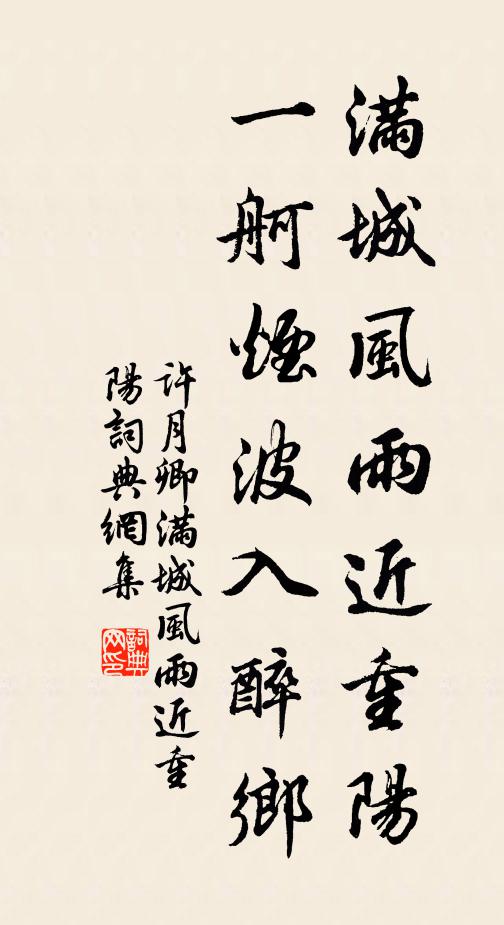 滿城風雨近重陽
一舸煙波入醉鄉
許月卿滿城風雨近重
陽詞典網集
詞典网印